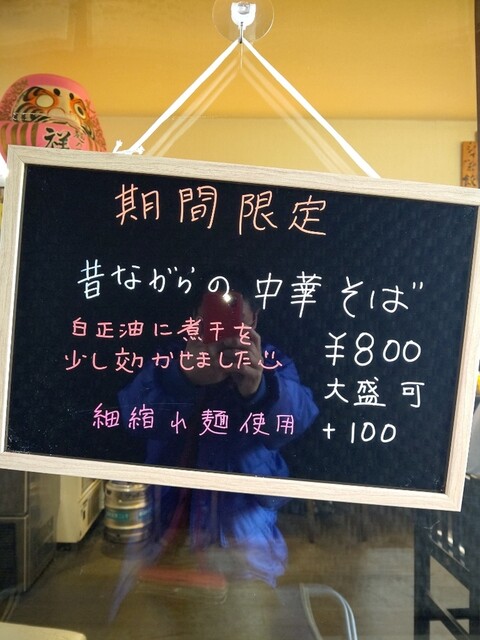 期間限定
昔ながらの 中華そば
白正油に煮干を
少し効かせました
¥800
大盛 可
細縮れ麺使用
+100
祥